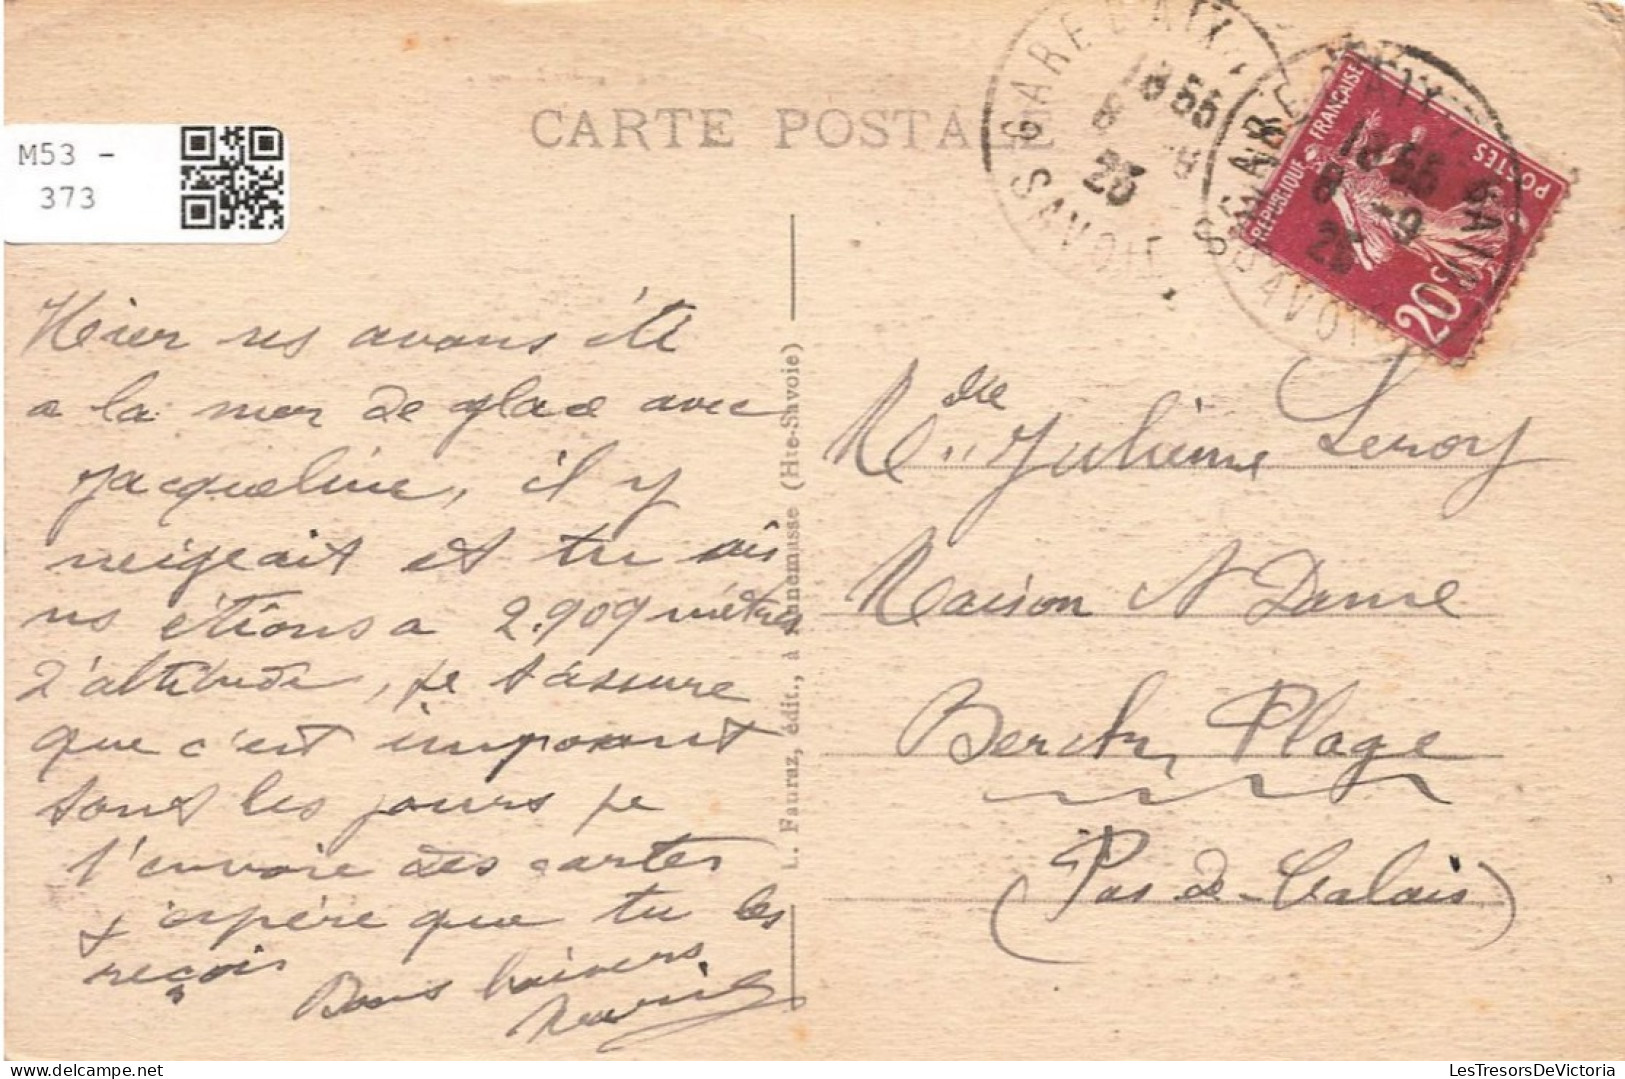 CARTE POSTALE
M53 -
373
GARE D'AIX
18 55
8 -9
25
SAVOIE
GARE D'AIX
18 55
8 -9
25
SAVOIE
REPUBLIQUE FRANÇAISE
POSTES
20c
Hier ns avons été
a la mer de glace avec
Jacqueline, il y
neigeait et tu sais
ns étions a 2.909 mètres
d'altitude, je t'assure
que c'est imposant
tous les jours je
t'envoie des cartes
j'espère que tu les
reçois
Bons baisers
L. Fauraz, édit., à Annemasse (Hte-Savoie)
Mdlle Julienne Leroy
Maison N Dame
Berck Plage
(Pas-de-Calais)
LesTresorsDeVictoria